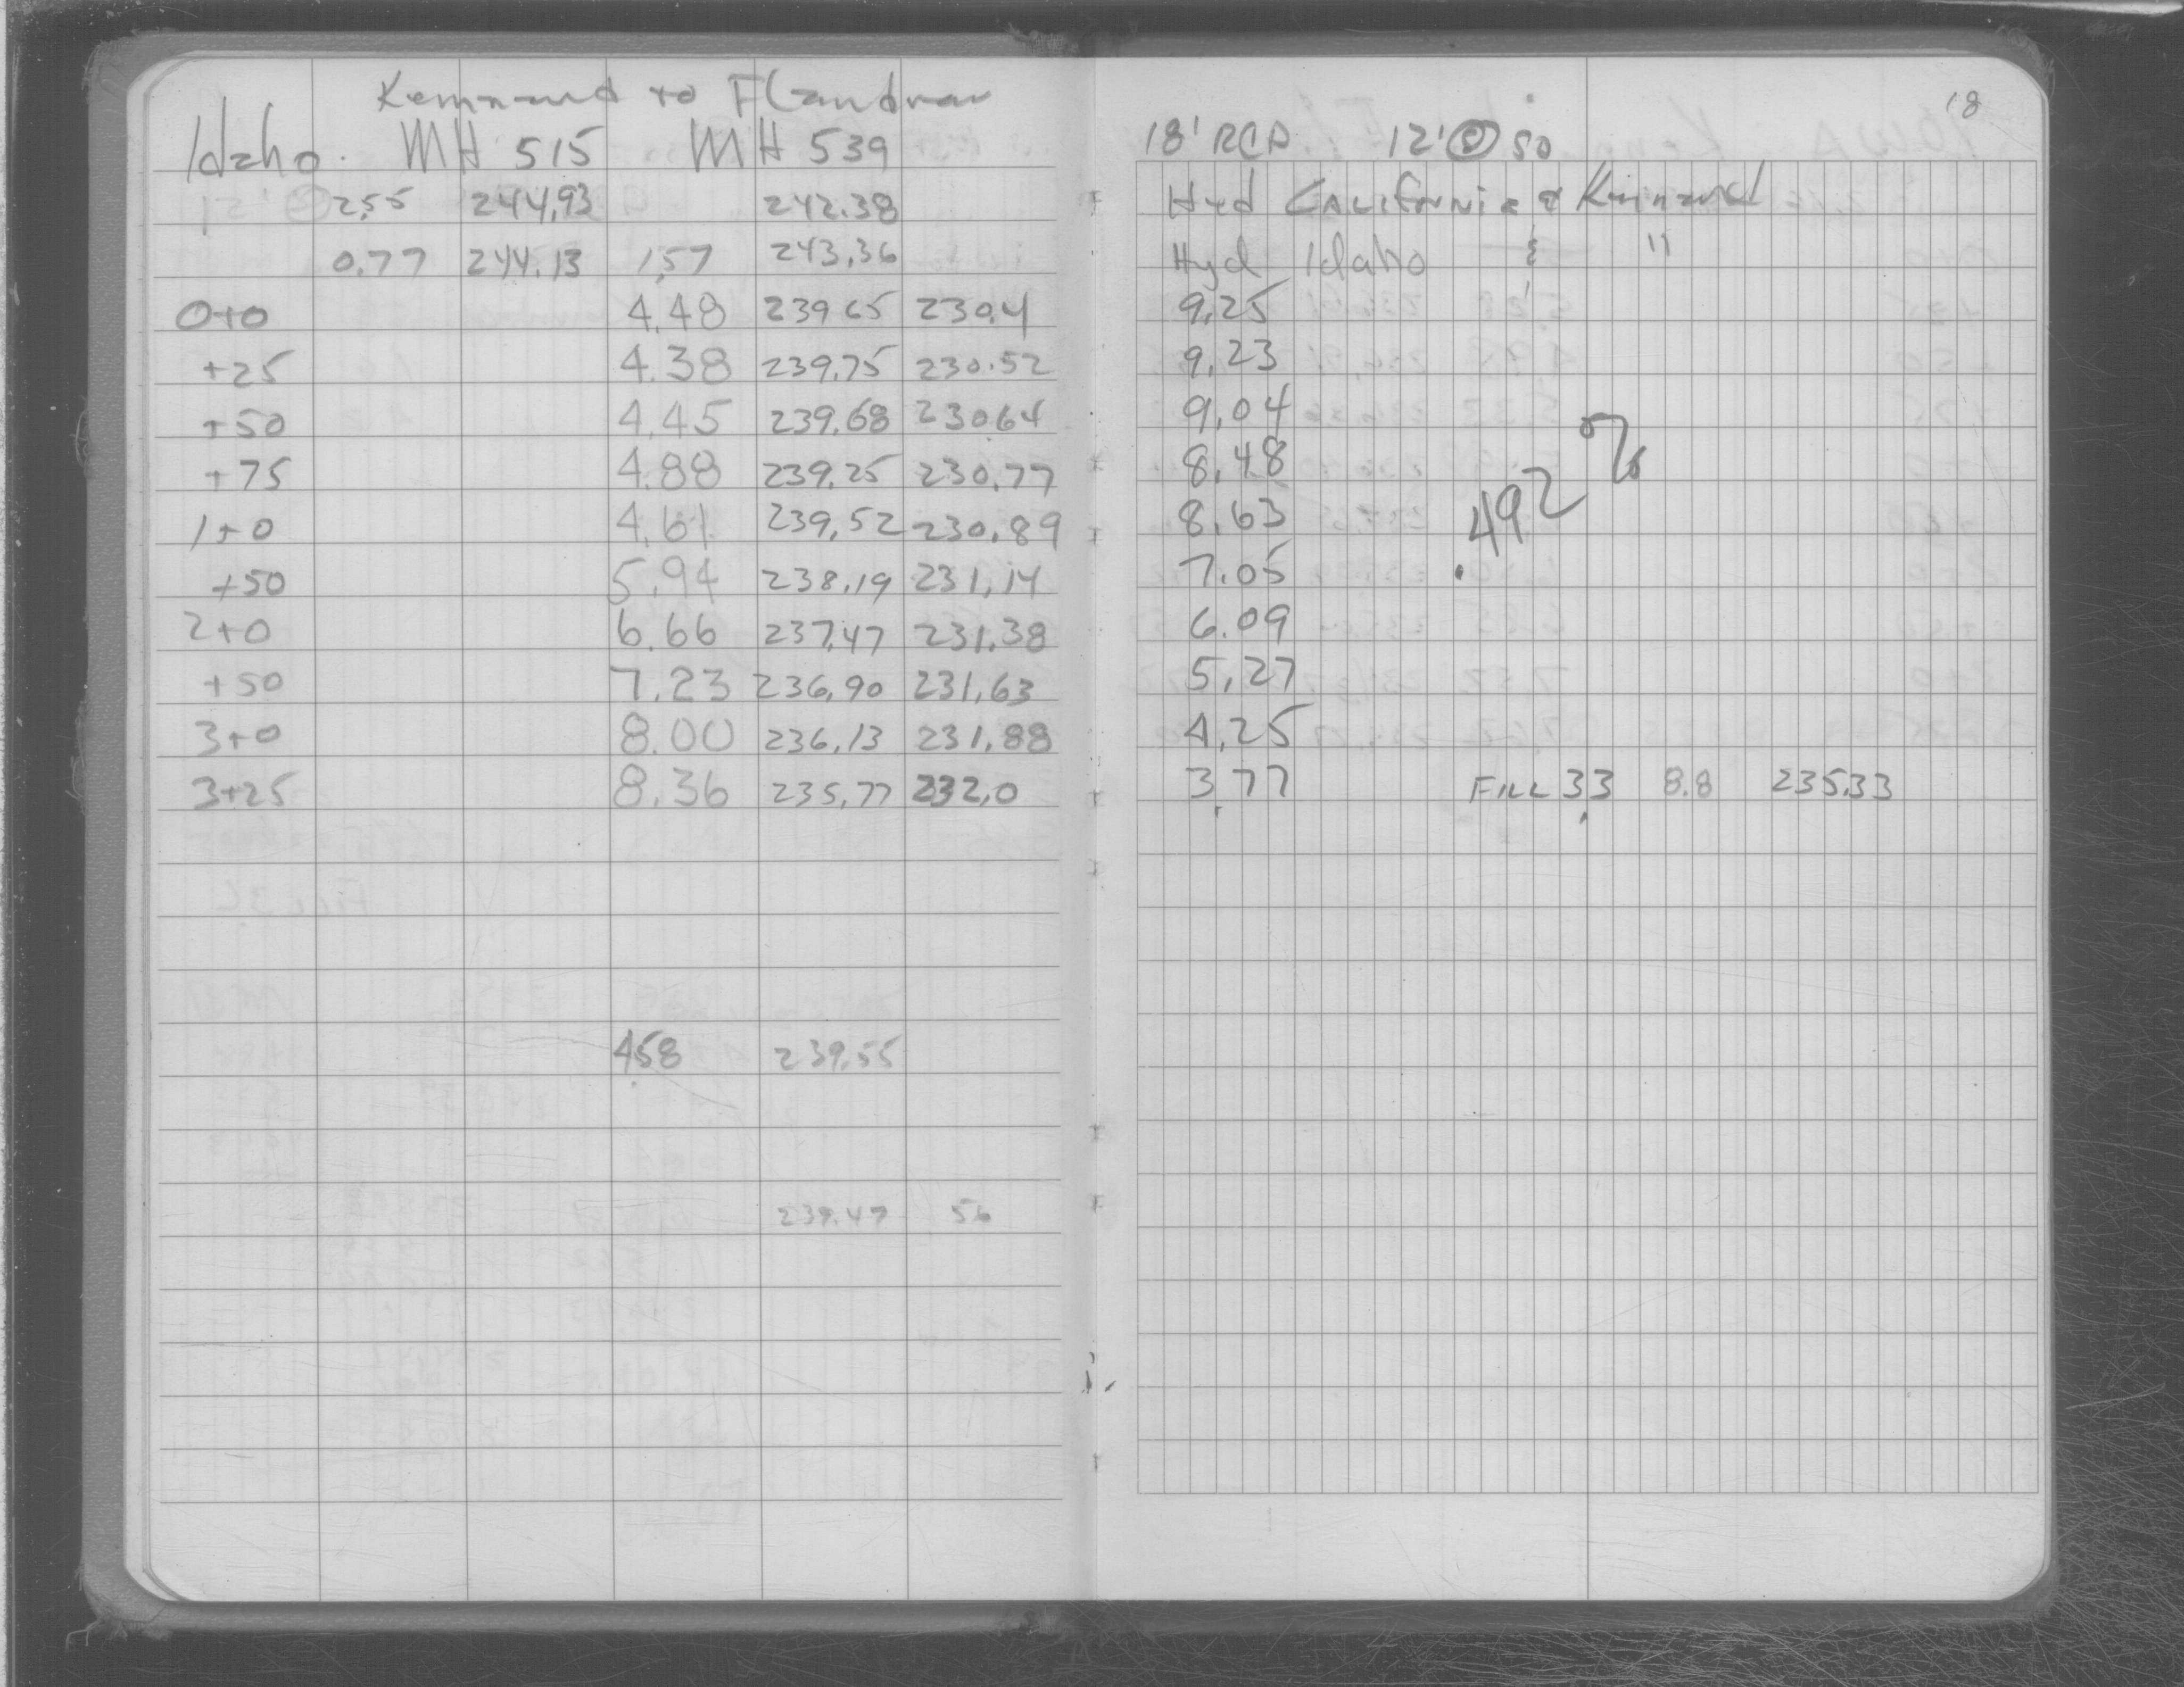 Kennard to Flandrau
Idaho. MH 515 MH 539
2.55 244.93 242.38
0.77 244.13 1.57 243.36
0+0 4.48 239.65 230.4
+25 4.38 239.75 230.52
+50 4.45 239.68 230.64
+75 4.88 239.25 230.77
1+0 4.61 239.52 230.89
+50 5.94 238.19 231.14
2+0 6.66 237.47 231.38
+50 7.23 236.90 231.63
3+0 8.00 236.13 231.88
3+25 8.36 235.77 232.0
4.58 239.55
239.47 56
18
18' RCP 12' @ 50
Hyd California & Kennard
Hyd Idaho & "
9.25
9.23
9.04
8.48
8.63
7.05
6.09
5.27
4.25
3.77 FILL 33 8.8 235.33
.492 %